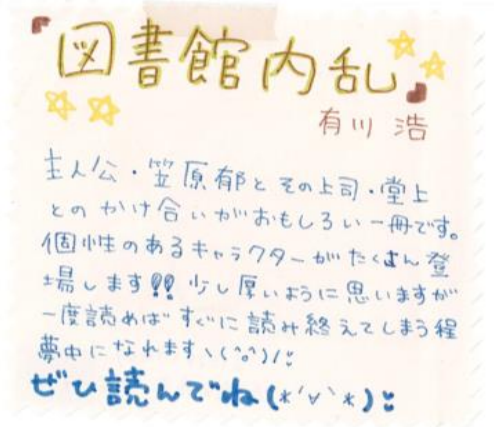 『図書館内乱』
有川 浩
主人公・笠原郁とその上司・堂上
とのかけ合いがおもしろい一冊です。
個性のあるキャラクターがたくさん登
場します!! 少し厚いように思いますが
一度読めばすぐに読み終えてしまう程
夢中になれますヽ(^o^)/
ぜひ読んでね(*'∀'*)